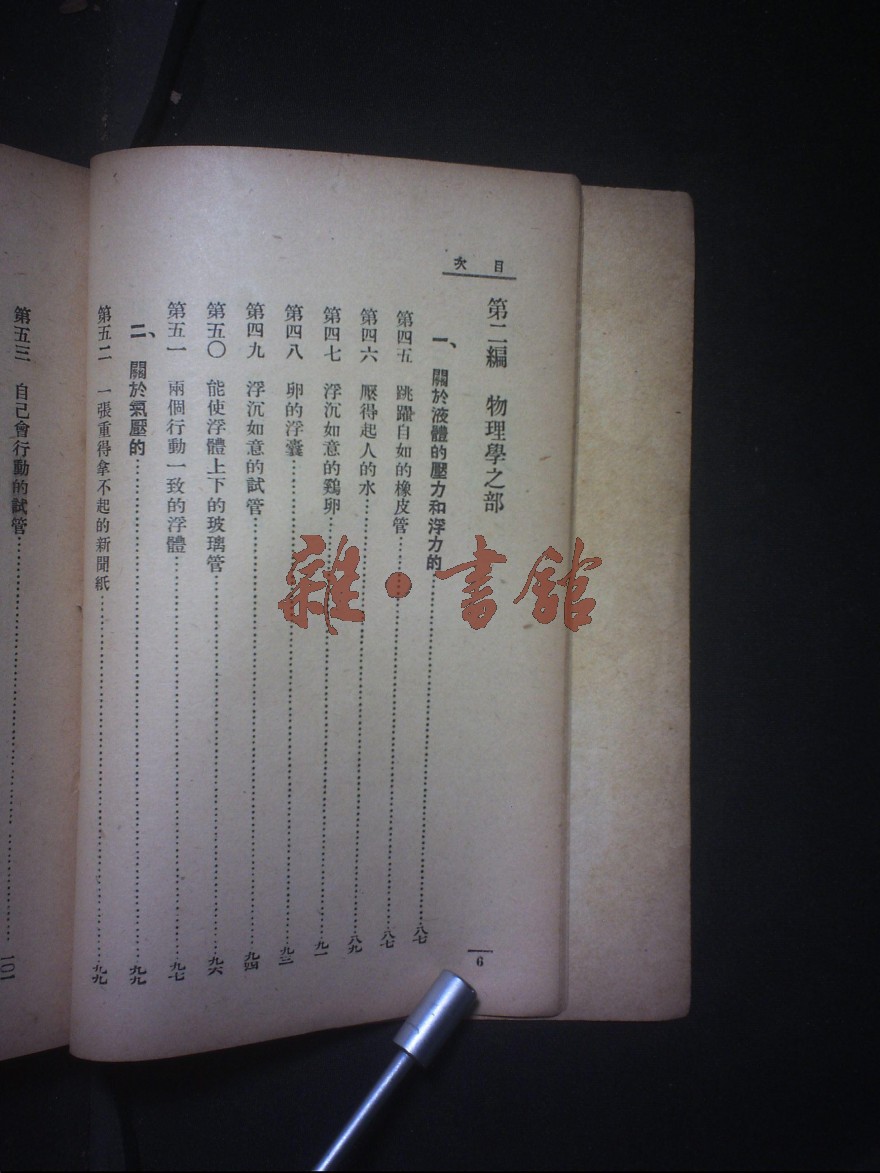 目次
第二編 物理學之部
一、關於液體的壓力和浮力的……八七
第四五 跳躍自如的橡皮管……八七
第四六 壓得起人的水……八九
第四七 浮沉如意的鷄卵……九一
第四八 卵的浮囊……九三
第四九 浮沉如意的試管……九四
第五〇 能使浮體上下的玻璃管……九六
第五一 兩個行動一致的浮體……九七
二、關於氣壓的……九九
第五二 一張重得拿不起的新聞紙……九九
第五三 自己會行動的試管……一〇一
6
雜·書館